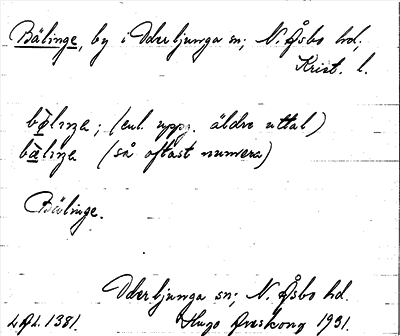 Bälinge, by i Oderljunga sn; N. Åsbo hd;
Krist. l.
bölinge; (enl. uppg. äldre uttal)
bälinge (så oftast numera)
Bälinge.
Oderljunga sn; N. Åsbo hd.
1381. Hugo 1931.